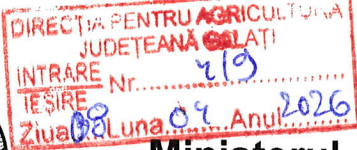 DIRECȚIA PENTRU AGRICULTURĂ
JUDEȚEANĂ GALAȚI
INTRARE
IEȘIRE
Nr. 419
Ziua 08 Luna 04 Anul 2026
Ministerul